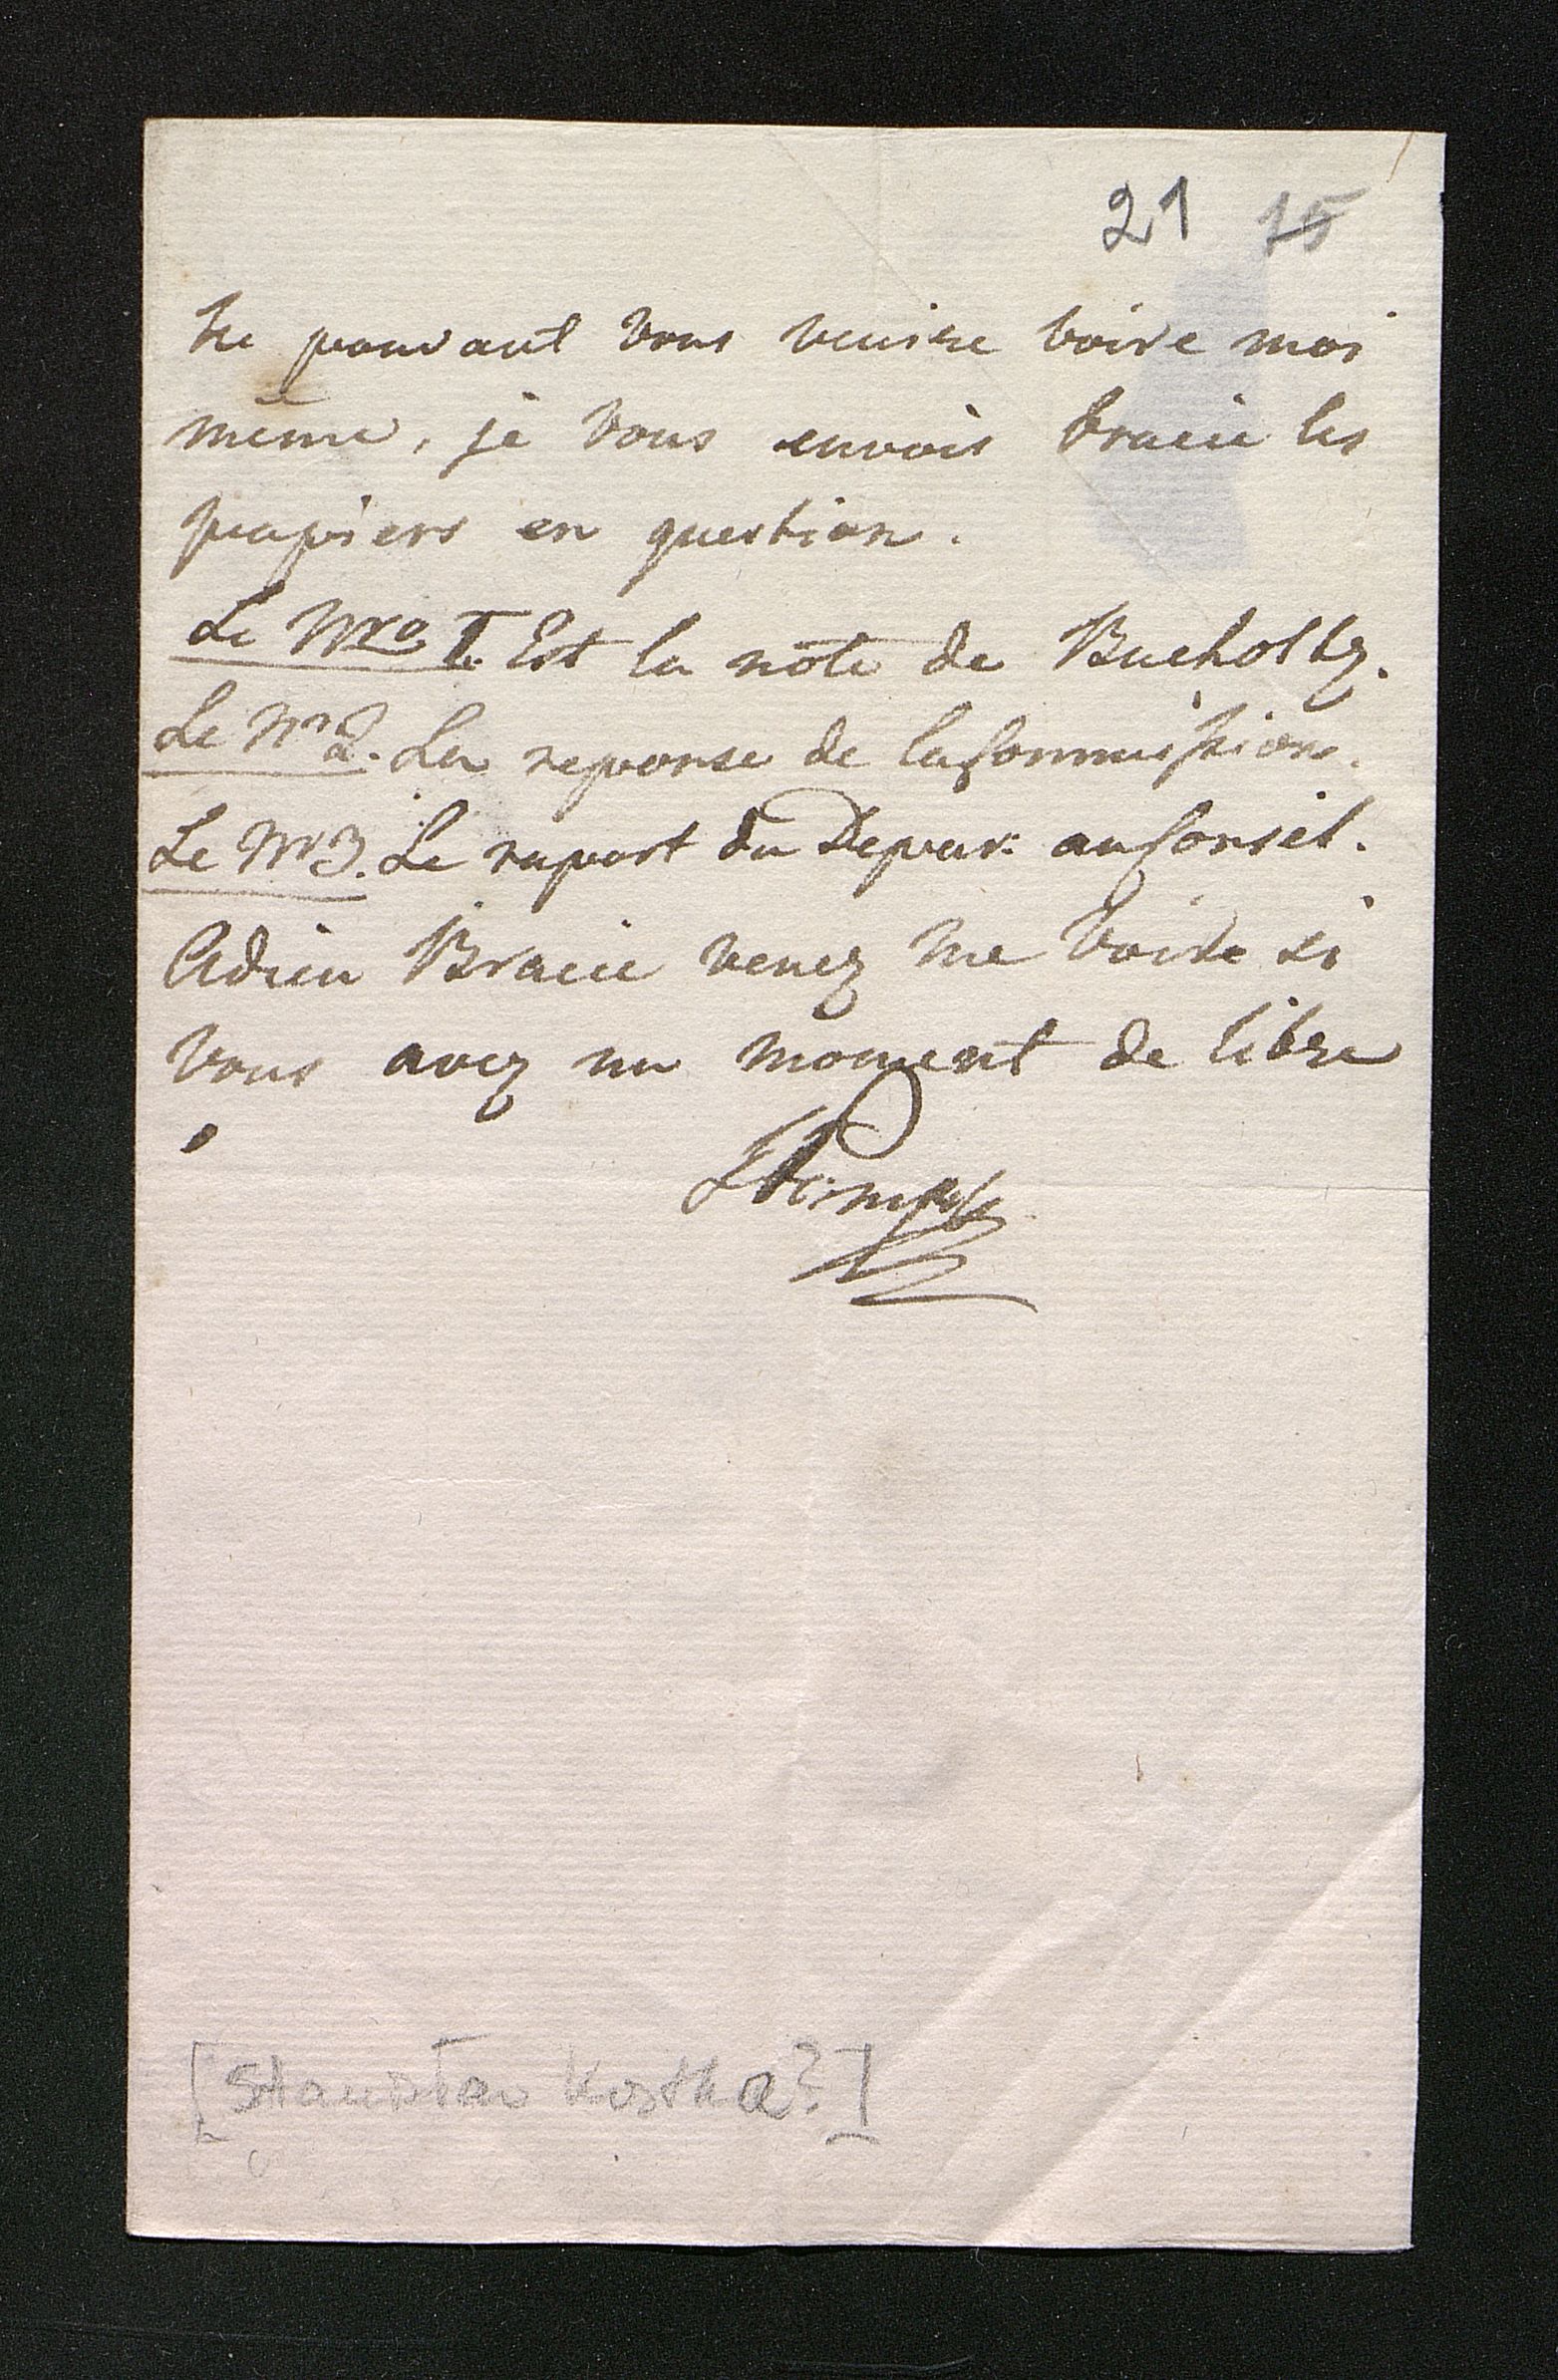 21 15
Ne pouvant vous venire voire moi
même, je vous envois bracie les
papiers en question.
Le Nro I. Est la note de Bucholtz.
Le Nr 2. La reponse de la Commission.
Le Nr 3. Le raport du Depar: au Conseil.
Adieu Bracie venez me voire si
vous avez un moment de libre
[Stanisław Kostka?]